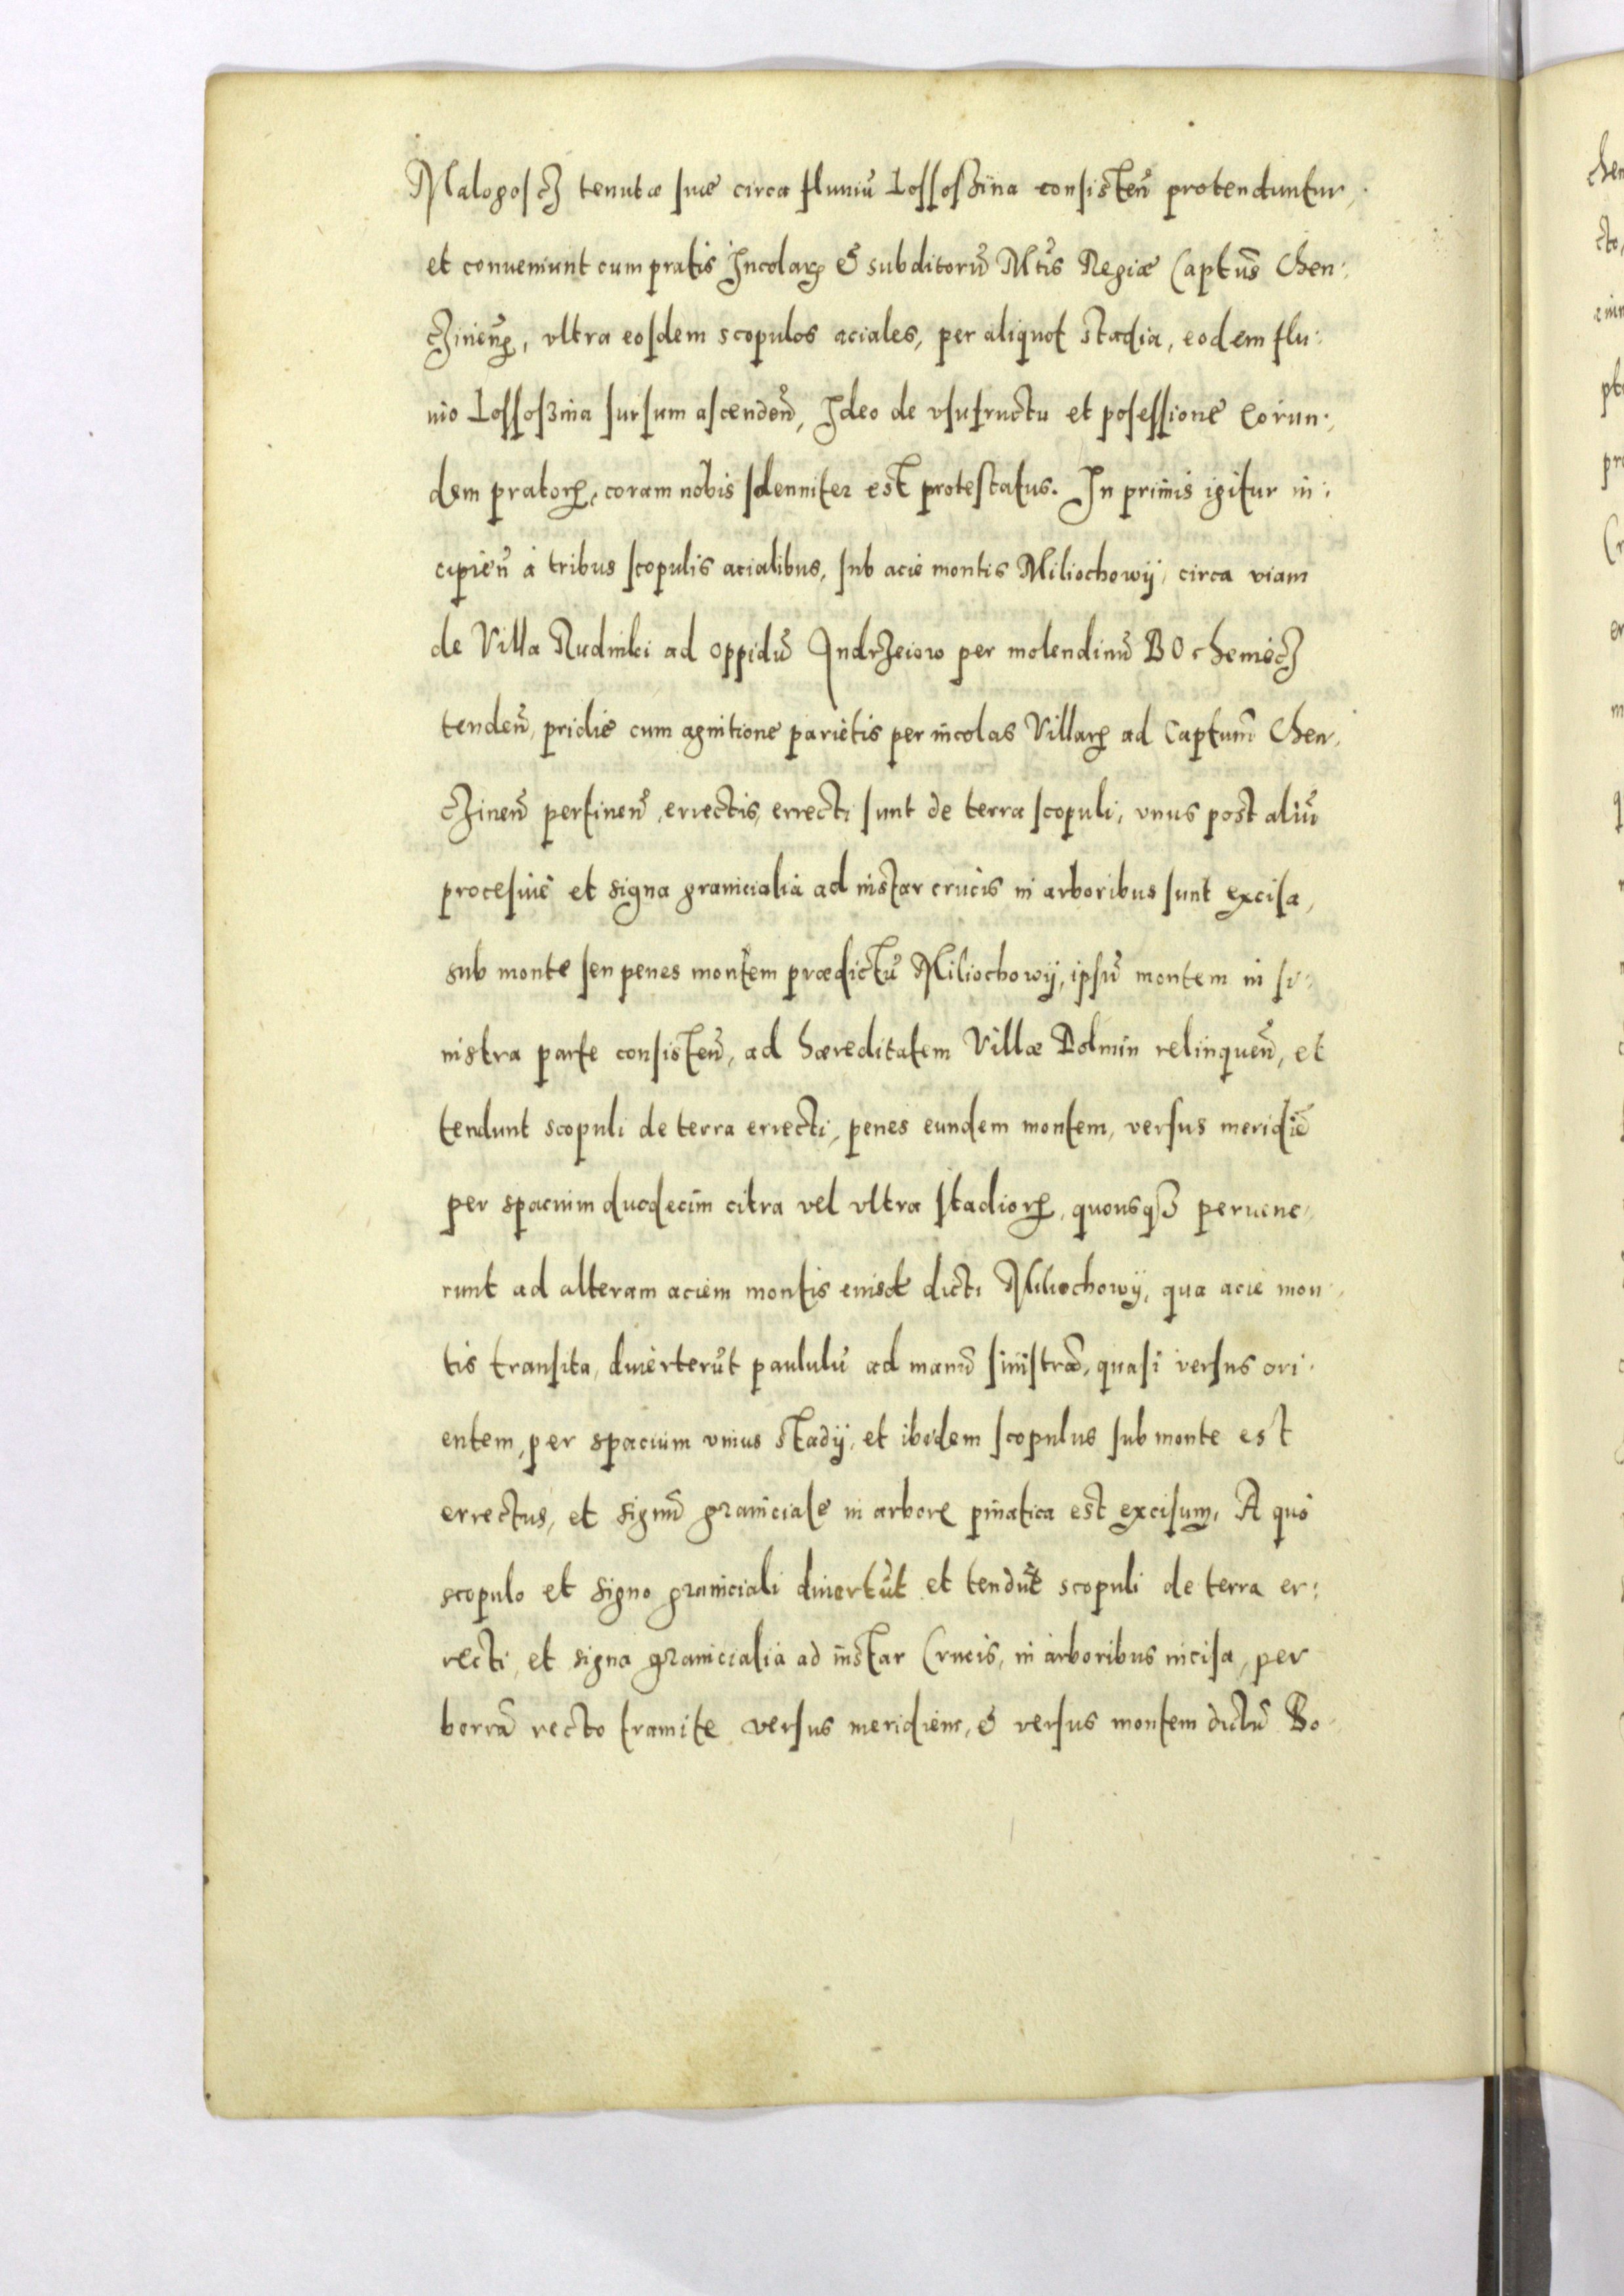 Malogoscz tenutæ suæ circa fluuiū Lossoszina consisteñ protenduntur,
et conueniunt cum pratis Incolarꝝ & subditorū Mtis Regiæ Captus Chen:
czineñꝝ, vltra eosdem scopulos aciales, per aliquot stadia, eodem flu:
uio Lossoszina sursum ascendeñ, Ideo de vsufructu et posessione eorun:
dem pratorꝝ, coram nobis solenniter est protestatus. In primis igitur in:
cipieñ à tribus scopulis acialibus, sub acie montis Miliochowÿ, circa viam
de Villa Rudniki ad oppidū Indrzeiow per molendinū BOcheniecz
tendeñ, pridie cum agnitione parietis per incolas Villarꝝ ad Captum Chen,
czineñ pertineñ, errectis, errecti sunt de terra scopuli, vnus post aliū
procesiue et signa granicialia ad instar crucis in arboribus sunt excisa,
sub monte seu penes montem prædictū Miliochowÿ, ipsū montem in si:
nistra parte consisteñ, ad hæreditatem Villæ Bolmin relinqueñ, et
tendunt scopuli de terra errecti, penes eundem montem, versus meridiē
per spacium duodecim citra vel vltra stadiorꝝ, quousqꝫ peruene,
runt ad alteram aciem montis eiusdē dicti Miliochowÿ, qua acie mon:
tis transita, diuerterūt paululū ad manū sinistrā, quasi versus ori:
entem, per spacium vnius stadÿ, et ibidem scopulus sub monte est
errectus, et signū graniciale in arbore pinatica est excisum, A quo
scopulo et signo graniciali diuertūt et tendūt scopuli de terra er:
recti, et signa granicialia ad instar Crucis, in arboribus incisa, per
borrā recto tramite versus meridiem, & versus montem dictū Bo